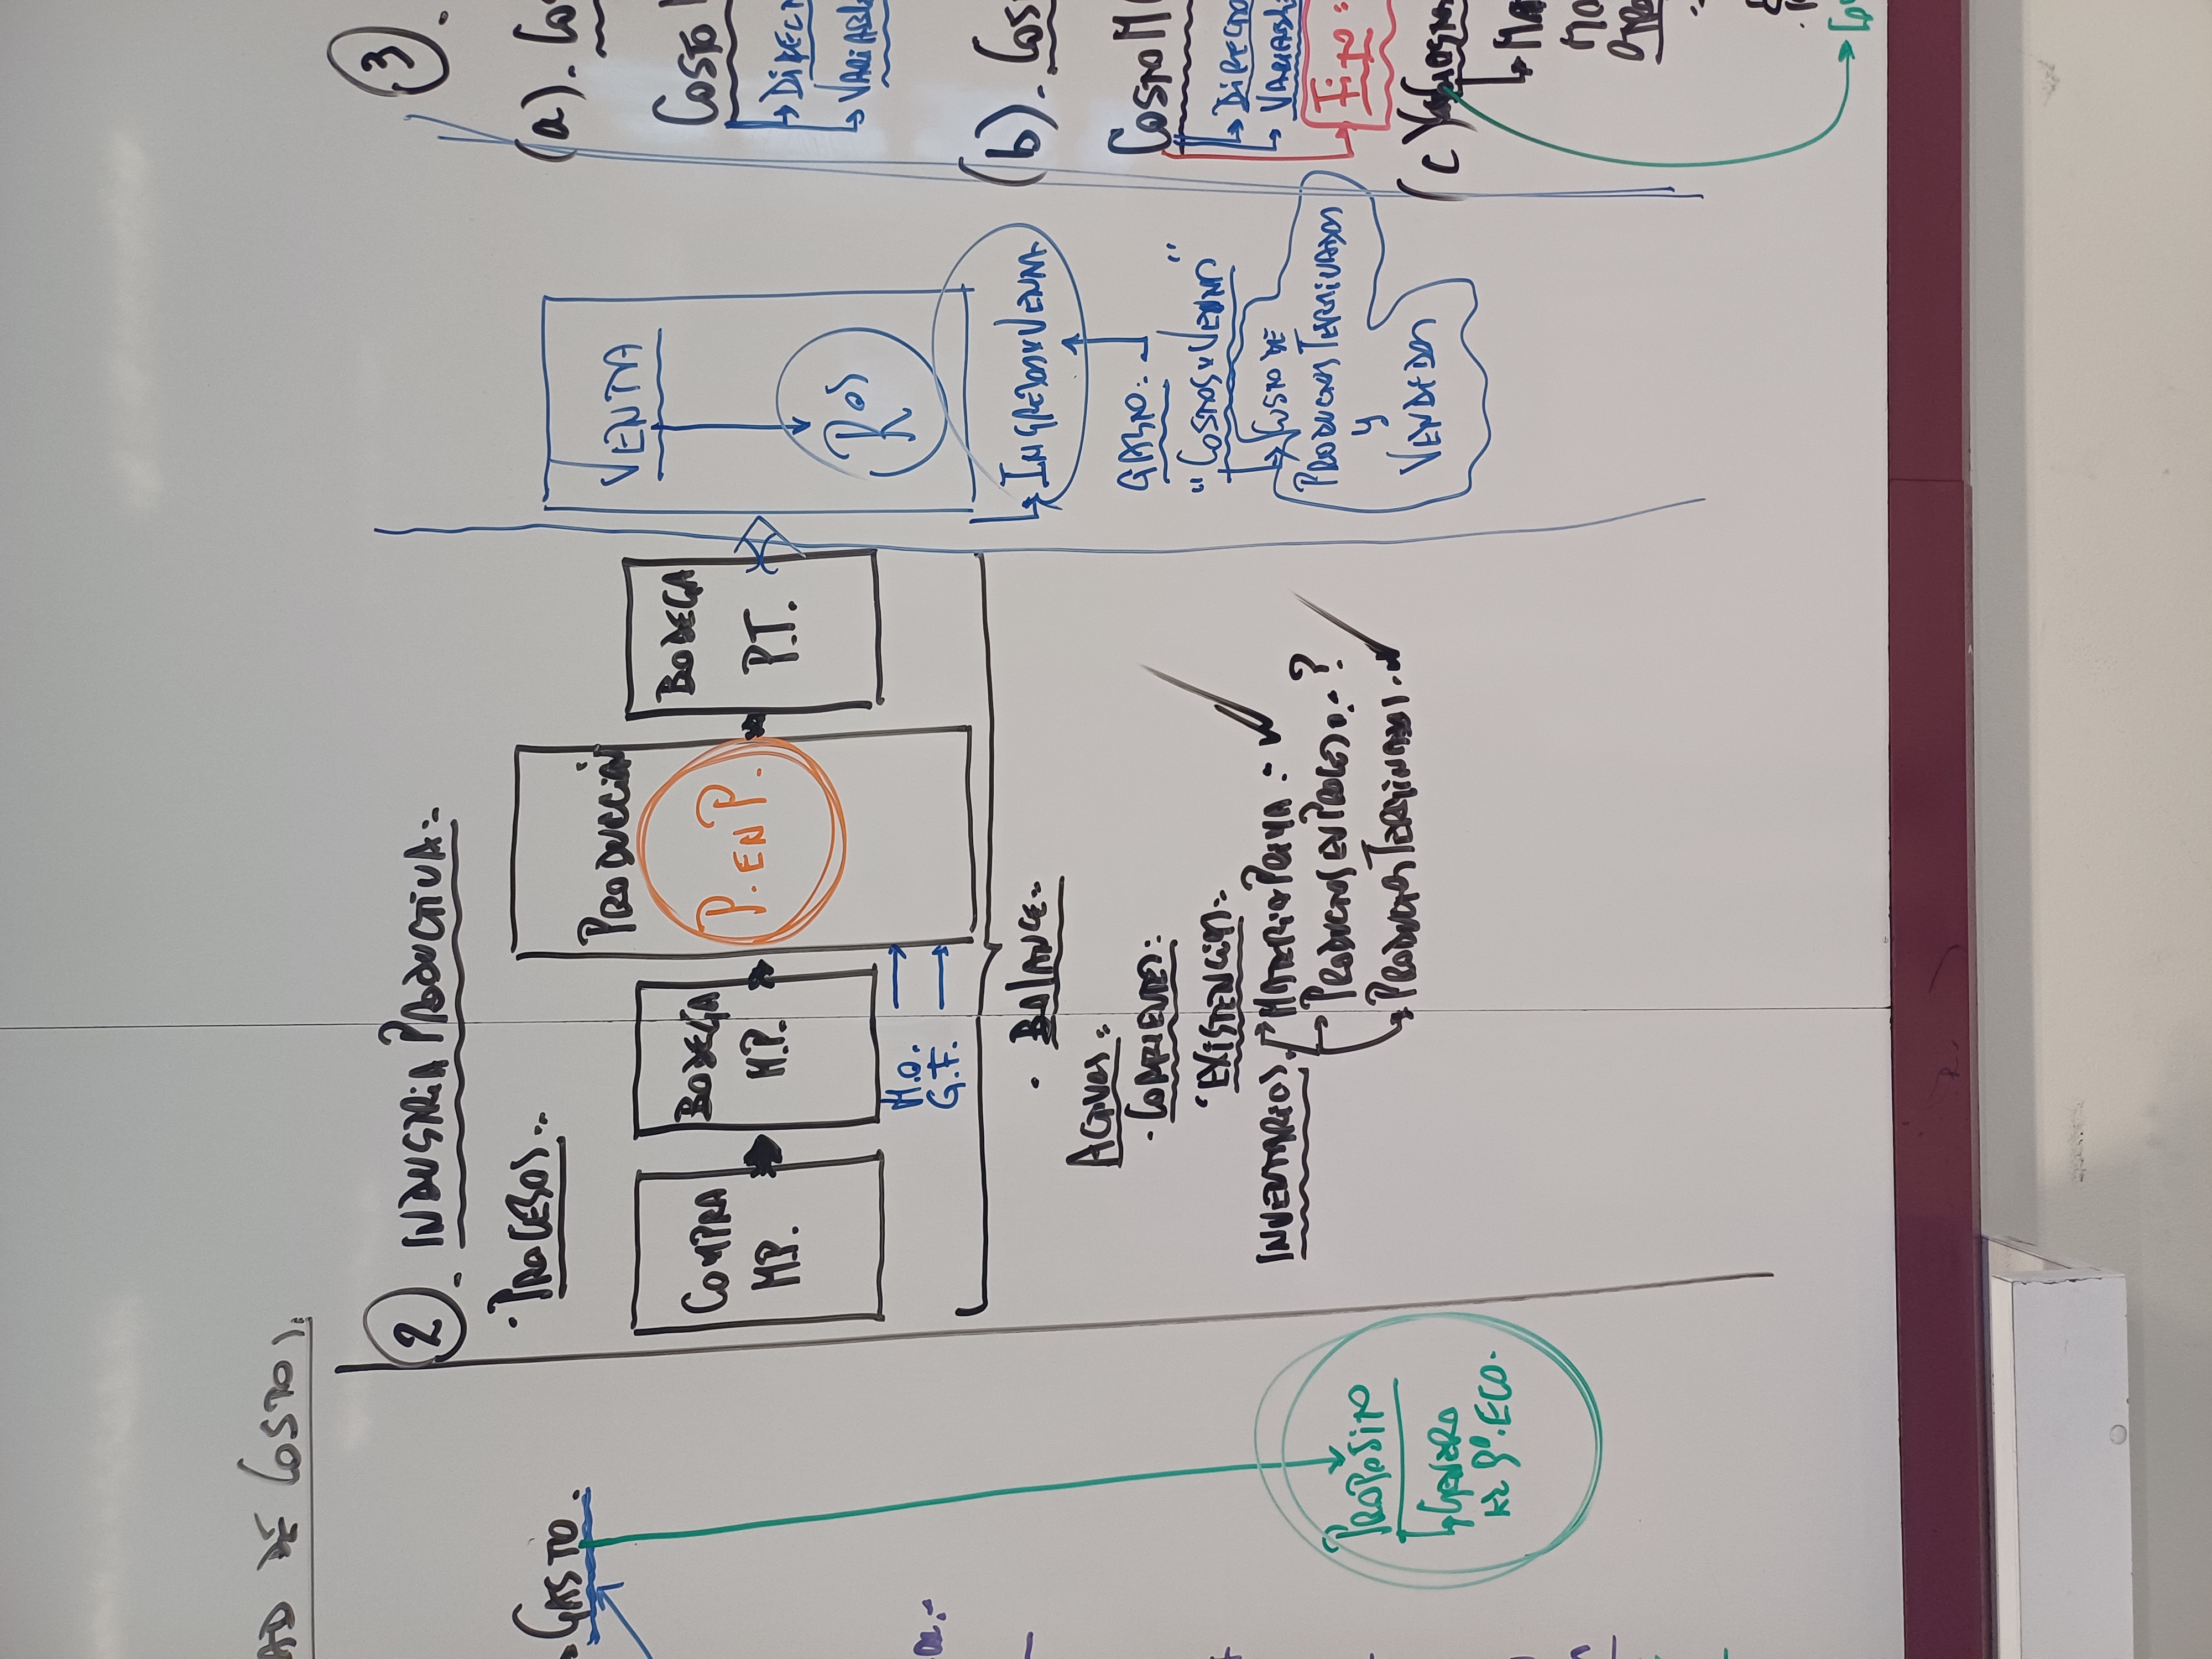 AD DE COSTOS.
GASTO.
PROPOSITO
GENERO
ECO.
2. INDUSTRIA PRODUCTIVA:
· PROCESOS.
COMPRA
M.P.
BODEGA
M.P.
PRODUCCIÓN
P. EN P.
BODEGA
P.T.
M.O.
G.F.
· BALANCE
ACTIVOS:
· CORRIENTES:
EXISTENCIAS:
INVENTARIOS
MATERIA PRIMA: ✓
PRODUCTOS EN PROCESO: ?
PRODUCTOS TERMINADOS. ✓
VENTA
ROS
INGRESOS X VENTA
GASTO:
"COSTOS X VENTA"
COSTO DE
PRODUCTOS TERMINADOS
Y
VENDIDOS
3.
(a). COS
COSTO
DIREC
VARIABLE
(b). COS
COSTO M
DIRECTO
VARIABLE
FIJO:
(c)
MA
MO
OTRO